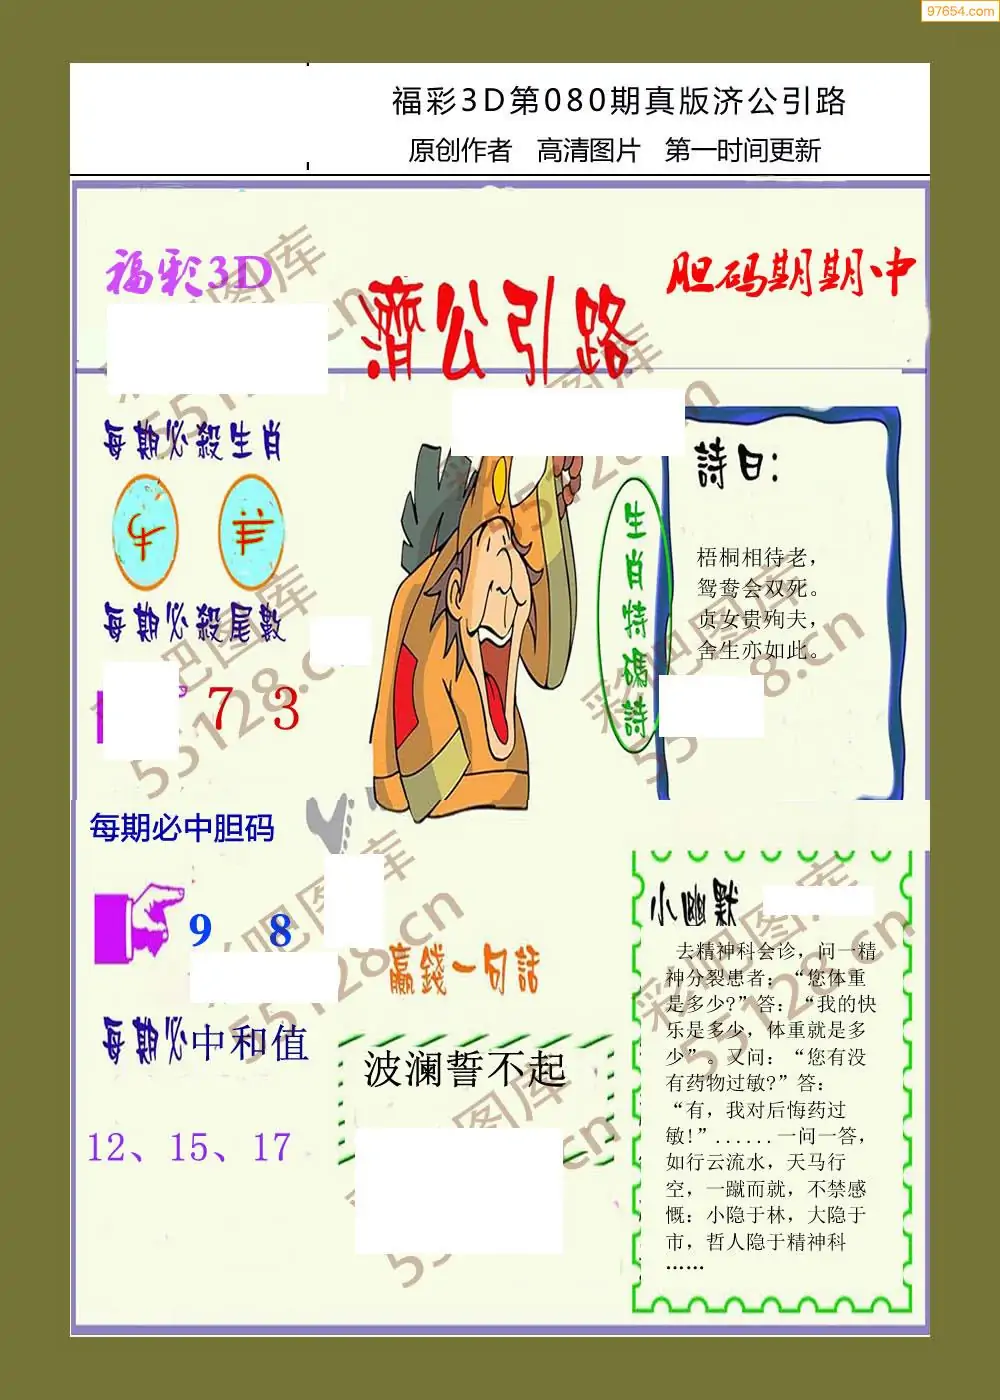 97654.com
福彩3D第080期真版济公引路
原创作者 高清图片 第一时间更新
福彩3D
胆码期期中
濟公引路
每期必殺生肖
牛 羊
每期必殺尾數
7 3
生肖特碼詩
詩曰:
梧桐相待老,
鸳鸯会双死。
贞女贵殉夫,
舍生亦如此。
每期必中胆码
9 8
每期必中和值
12、15、17
贏錢一句話
波澜誓不起
小幽默
去精神科会诊，问一精
神分裂患者；“您体重
是多少?”答：“我的快
乐是多少，体重就是多
少”。又问：“您有没
有药物过敏?”答：
“有，我对后悔药过
敏!”......一问一答，
如行云流水，天马行
空，一蹴而就，不禁感
慨：小隐于林，大隐于
市，哲人隐于精神科
……
彩吧图库
55128.cn